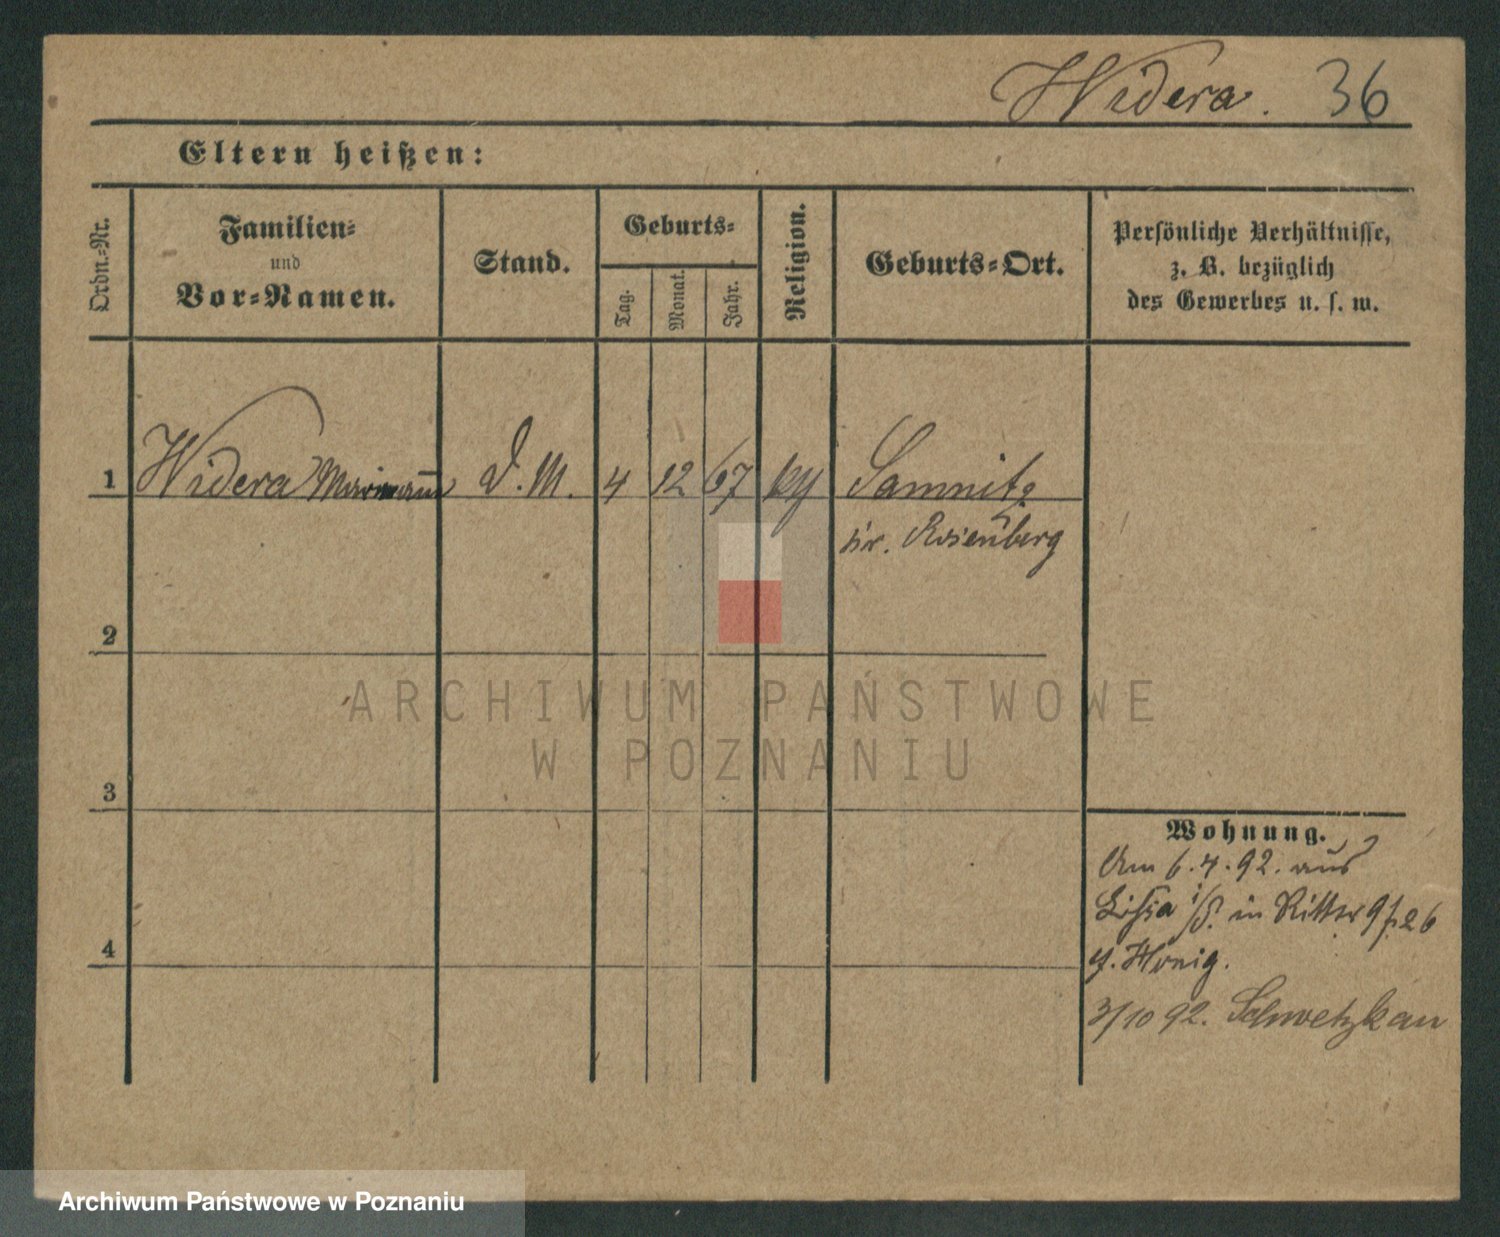 Widera. 36
Eltern heißen:
Ordn.-Nr.
Familien-
und
Vor-Namen.
Stand.
Geburts-
Tag.
Monat.
Jahr.
Religion.
Geburts-Ort.
Persönliche Verhältnisse,
z. B. bezüglich
des Gewerbes u. s. w.
1 Widera D. M. 4 12 67 Samnitz
kr. Rosenberg
2
3
4
Wohnung.
Am 6. 4. 92. aus
Lissa i/P. in Ritter 9 26
Honig.
3/10 92. Schwetzkau
ARCHIWUM PAŃSTWOWE
W POZNANIU
Archiwum Państwowe w Poznaniu